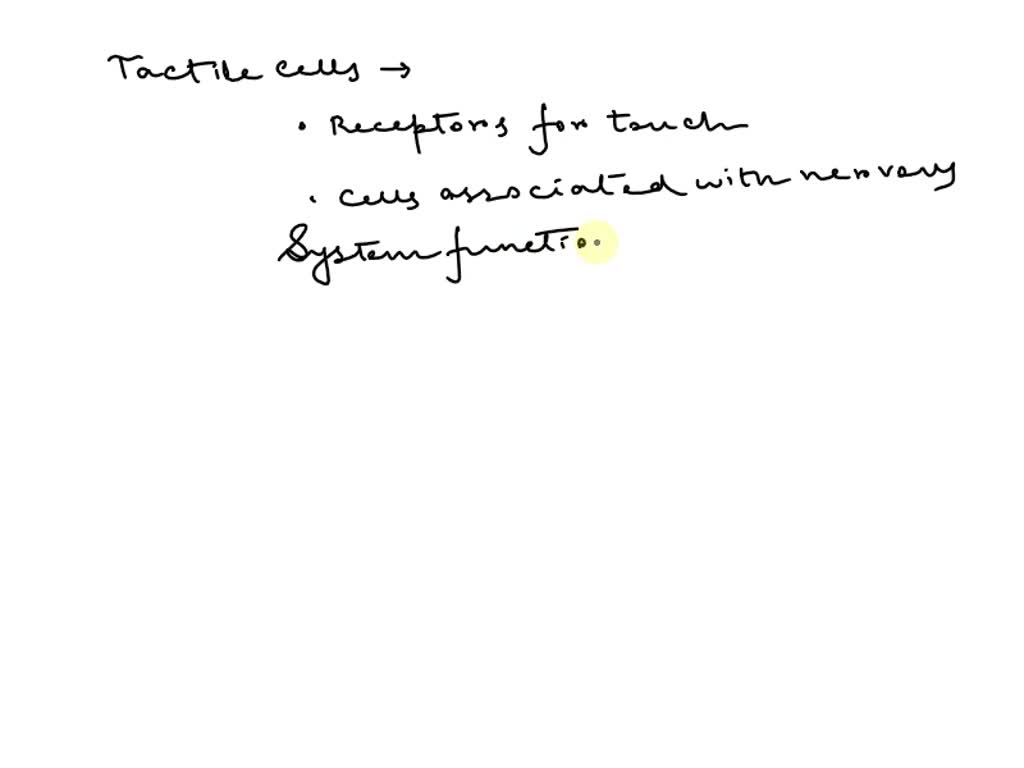 Tactile cells →
• Receptors for touch
• cells associated with nervory
System functio